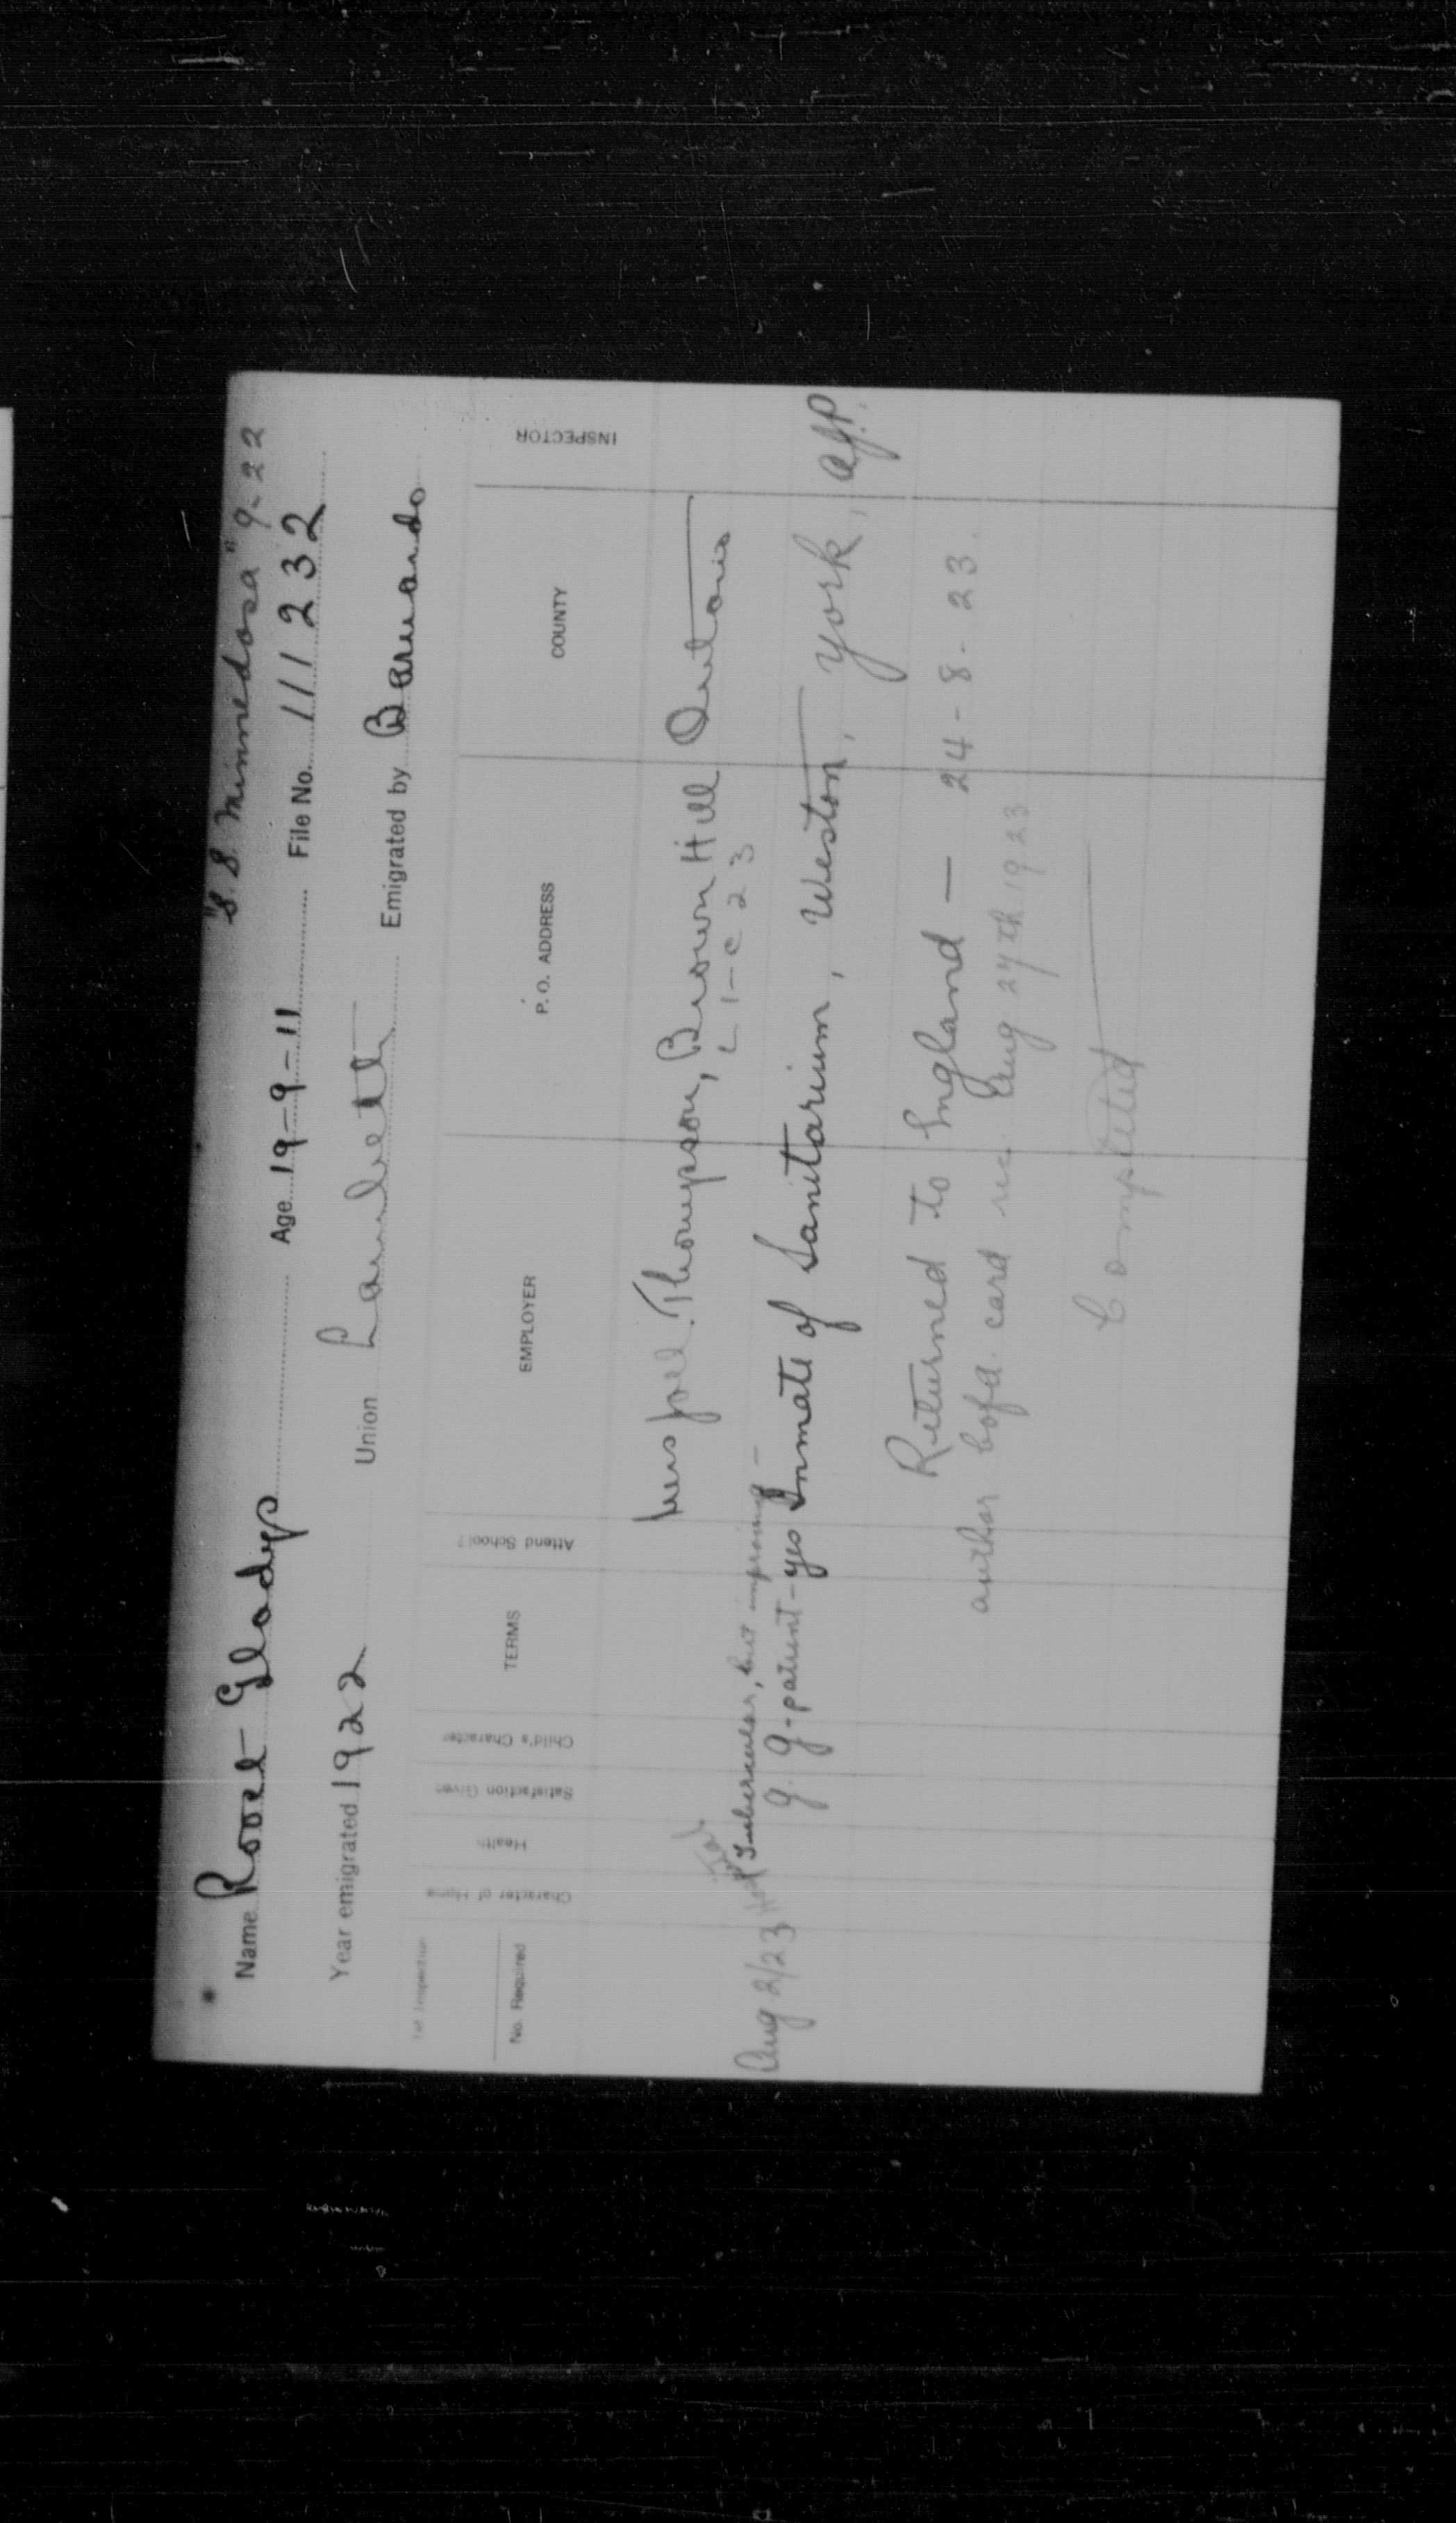 "S.S. Minnedosa" 9-22
Name Rosel Gladys Age 19-9-11 File No. 111232
Year emigrated 1922 Union Lambeth Emigrated by Barnardo
1st Inspection
No. Required Character of Home Health Satisfaction Given Child's Character TERMS Attend School? EMPLOYER P. O. ADDRESS COUNTY INSPECTOR
Mrs Joel Thompson, Brown Hill Ontario
L 1 - C 23
Tubercular, but improving -
Aug 2/23 g. g. patient - yes Inmate of Sanitarium, Weston, York,
Returned to England — 24-8-23.
author card rec Aug 27th 1923
Completed